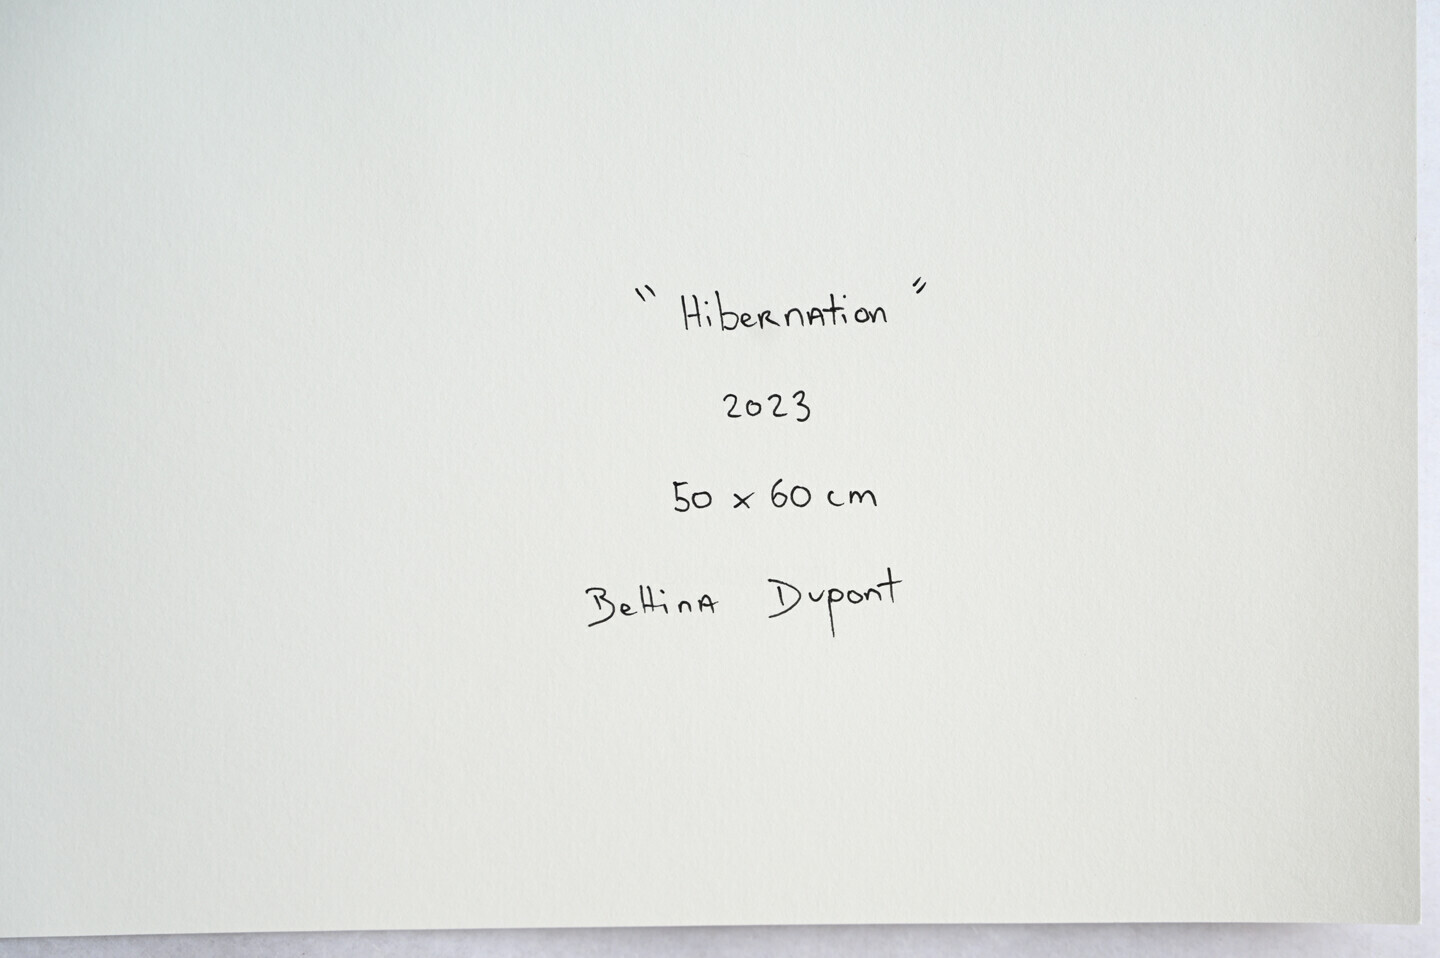 "Hibernation"
2023
50 x 60 cm
Bettina Dupont